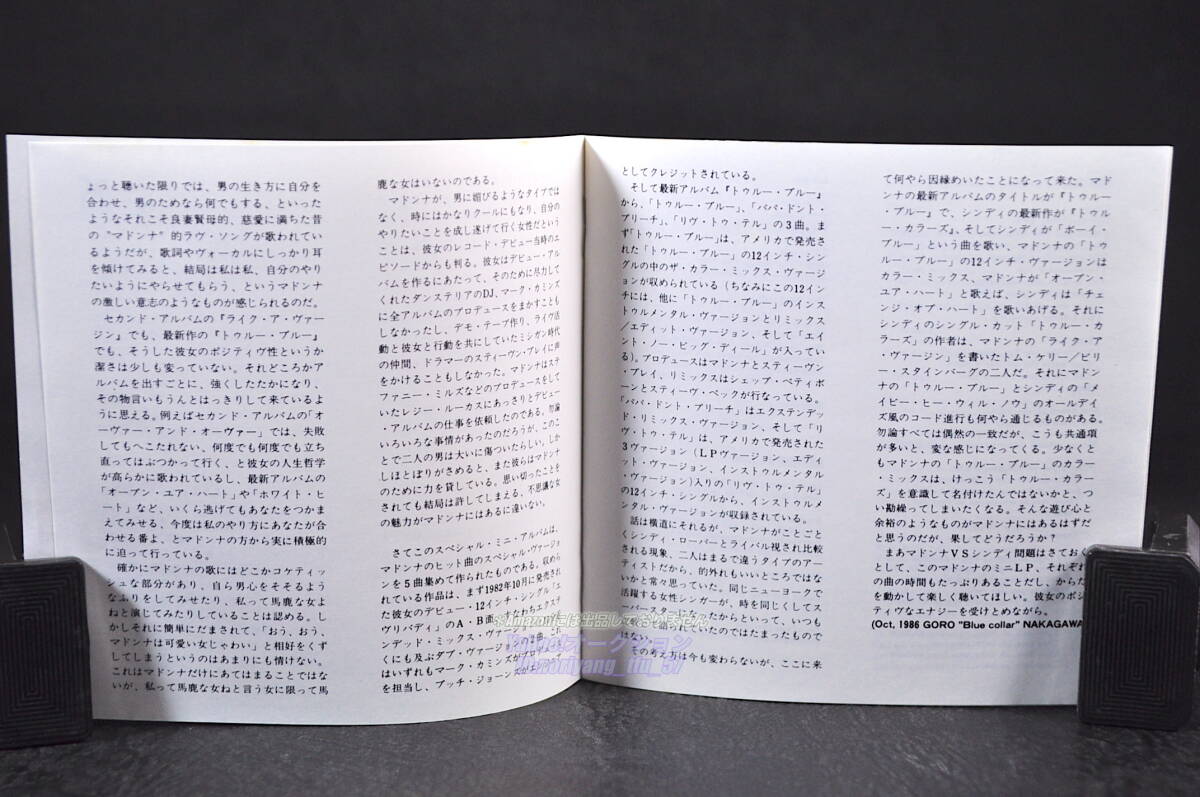 ょっと聴いた限りでは、男の生き方に自分を
合わせ、男のためなら何でもする、といった
ようなそれこそ良妻賢母的、慈愛に満ちた昔
の“マドンナ”的ラヴ・ソングが歌われてい
るようだが、歌詞やヴォーカルにしっかり耳
を傾けてみると、結局は私は私、自分のやり
たいようにやらせてもらう、というマドンナ
の激しい意志のようなものが感じられるのだ。
セカンド・アルバムの『ライク・ア・ヴァー
ジン』でも、最新作の『トゥルー・ブルー』
でも、そうした彼女のポジティヴ性というか
潔さは少しも変っていない。それどころかア
ルバムを出すごとに、強くしたたかになり、
その物言いもうんとはっきりして来ているよ
うに思える。例えばセカンド・アルバムの「オ
ーヴァー・アンド・オーヴァー」では、失敗
してもへこたれない、何度でも何度でも立ち
直ってはぶつかって行く、と彼女の人生哲学
が高らかに歌われているし、最新アルバムの
「オープン・ユア・ハート」や「ホワイト・ヒ
ート」など、いくら逃げてもあなたをつかま
えてみせる、今度は私のやり方にあなたが合
わせる番よ、とマドンナの方から実に積極的
に迫って行っている。
確かにマドンナの歌にはどこかコケティッ
シュな部分があり、自ら男心をそそるよう
なふりをしてみせたり、私って馬鹿な女よ
ねと演じてみたりしていることは認める。し
かしそれに簡単にだまされて、「おう、おう、
マドンナは可愛い女じゃわい」と相好をくず
してしまうというのはあまりにも情けない。
これはマドンナだけにあてはまることではな
いが、私って馬鹿な女ねと言う女に限って馬
鹿な女はいないのである。
マドンナが、男に媚びるようなタイプでは
なく、時にはかなりクールにもなり、自分の
やりたいことを成し遂げて行く女性だという
ことは、彼女のレコード・デビュー当時のエ
ピソードからも判る。彼女はデビュー・アル
バムを作るにあたって、そのために尽力して
くれたダンステリアのDJ、マーク・カミンズ
に全アルバムのプロデュースをまかすことも
しなかったし、デモ・テープ作り、ライヴ活
動と彼女と行動を共にしていたミシガン時代
の仲間、ドラマーのスティーヴン・ブレイに声
をかけることもしなかった。マドンナはステ
ファニー・ミルズなどのプロデュースをして
いたレジー・ルーカスにあっさりとデビュー
・アルバムの仕事を依頼したのである。勿論
いろいろな事情があったのだろうが、このこ
とで二人の男は大いに傷ついたらしい。しか
しほとぼりがさめると、また彼らはマドンナ
のために力を貸している。思い切ったことを
されても結局は許してしまえる、不思議な女
の魅力がマドンナにはあるに違いない。
さてこのスペシャル・ミニ・アルバムは、
マドンナのヒット曲のスペシャル・ヴァージョ
ンを5曲集めて作られたものである。収めら
れている作品は、まず1982年10月に発売され
た彼女のデビュー・12インチ・シングル「エ
ヴリバディ」のA・B面、すなわちエクステ
ンデッド・ミックス・ヴァージョンの2曲。
くにも及ぶダブ・ヴァージョン
はいずれもマーク・カミンズがプロデュース
を担当し、ブッチ・ジョーンズが
としてクレジットされている。
そして最新アルバム『トゥルー・ブルー』
から、「トゥルー・ブルー」、「パパ・ドント・
プリーチ」、「リヴ・トゥ・テル」の3曲。ま
ず「トゥルー・ブルー」は、アメリカで発売さ
れた「トゥルー・ブルー」の12インチ・シン
グルの中のザ・カラー・ミックス・ヴァージ
ョンが収められている（ちなみにこの12イン
チには、他に「トゥルー・ブルー」のインス
トゥルメンタル・ヴァージョンとリミックス
／エディット・ヴァージョン、そして「エイ
ント・ノー・ビッグ・ディール」が入ってい
る）。プロデュースはマドンナとスティーヴン
・ブレイ、リミックスはシェップ・ペティボ
ーンとスティーヴ・ペックが行なっている。
「パパ・ドント・プリーチ」はエクステンデッ
ド・リミックス・ヴァージョン、そして「リ
ヴ・トゥ・テル」は、アメリカで発売された
3ヴァージョン（LPヴァージョン、エディ
ット・ヴァージョン、インストゥルメンタル
・ヴァージョン）入りの「リヴ・トゥ・テル」
の12インチ・シングルから、インストゥルメ
ンタル・ヴァージョンが収録されている。
話は横道にそれるが、マドンナがことごと
くシンディ・ローパーとライバル視され比較
される現象、二人はまるで違うタイプのアー
ティストだから、的外れもいいところではな
いかと常々思っていた。同じニューヨークで
活躍する女性シンガーが、時を同じくしてス
ーパースターになったからといって、いつも
並べて語られていたのではたまったもので
はない。
その考え方は今も変わらないが、ここに来
て何やら因縁めいたことになって来た。マド
ンナの最新アルバムのタイトルが『トゥルー
・ブルー』で、シンディの最新作が『トゥル
ー・カラーズ』、そしてシンディが「ボーイ・
ブルー」という曲を歌い、マドンナの「トゥ
ルー・ブルー」の12インチ・ヴァージョンは
カラー・ミックス、マドンナが「オープン・
ユア・ハート」と歌えば、シンディは「チェ
ンジ・オブ・ハート」を歌いあげる。それに
シンディのシングル・カット「トゥルー・カ
ラーズ」の作者は、マドンナの「ライク・ア
・ヴァージン」を書いたトム・ケリー／ビリ
ー・スタインバーグの二人だ。それにマドン
ナの「トゥルー・ブルー」とシンディの「メ
イビー・ヒー・ウィル・ノウ」のオールデイ
ズ風のコード進行も何やら通じるものがある。
勿論すべては偶然の一致だが、こうも共通項
が多いと、変な感じになってくる。少なくと
もマドンナの「トゥルー・ブルー」のカラー
・ミックスは、けっこう「トゥルー・カラー
ズ」を意識して名付けたんではないかと、つ
い勘繰ってしまいたくなる。そんな遊び心と
余裕のようなものがマドンナにはあるはずだ
と思うのだが、果してどうだろうか？
まあマドンナVSシンディ問題はさておく
として、このマドンナのミニLP、それぞれ
の曲の時間もたっぷりあることだし、からだ
を動かして楽しく聴いてほしい。彼女のポジ
ティヴなエナジーを受けとめながら。
(Oct, 1986 GORO "Blue collar" NAKAGAWA
※Amazonには出品しておりません
Yahoo!オークション